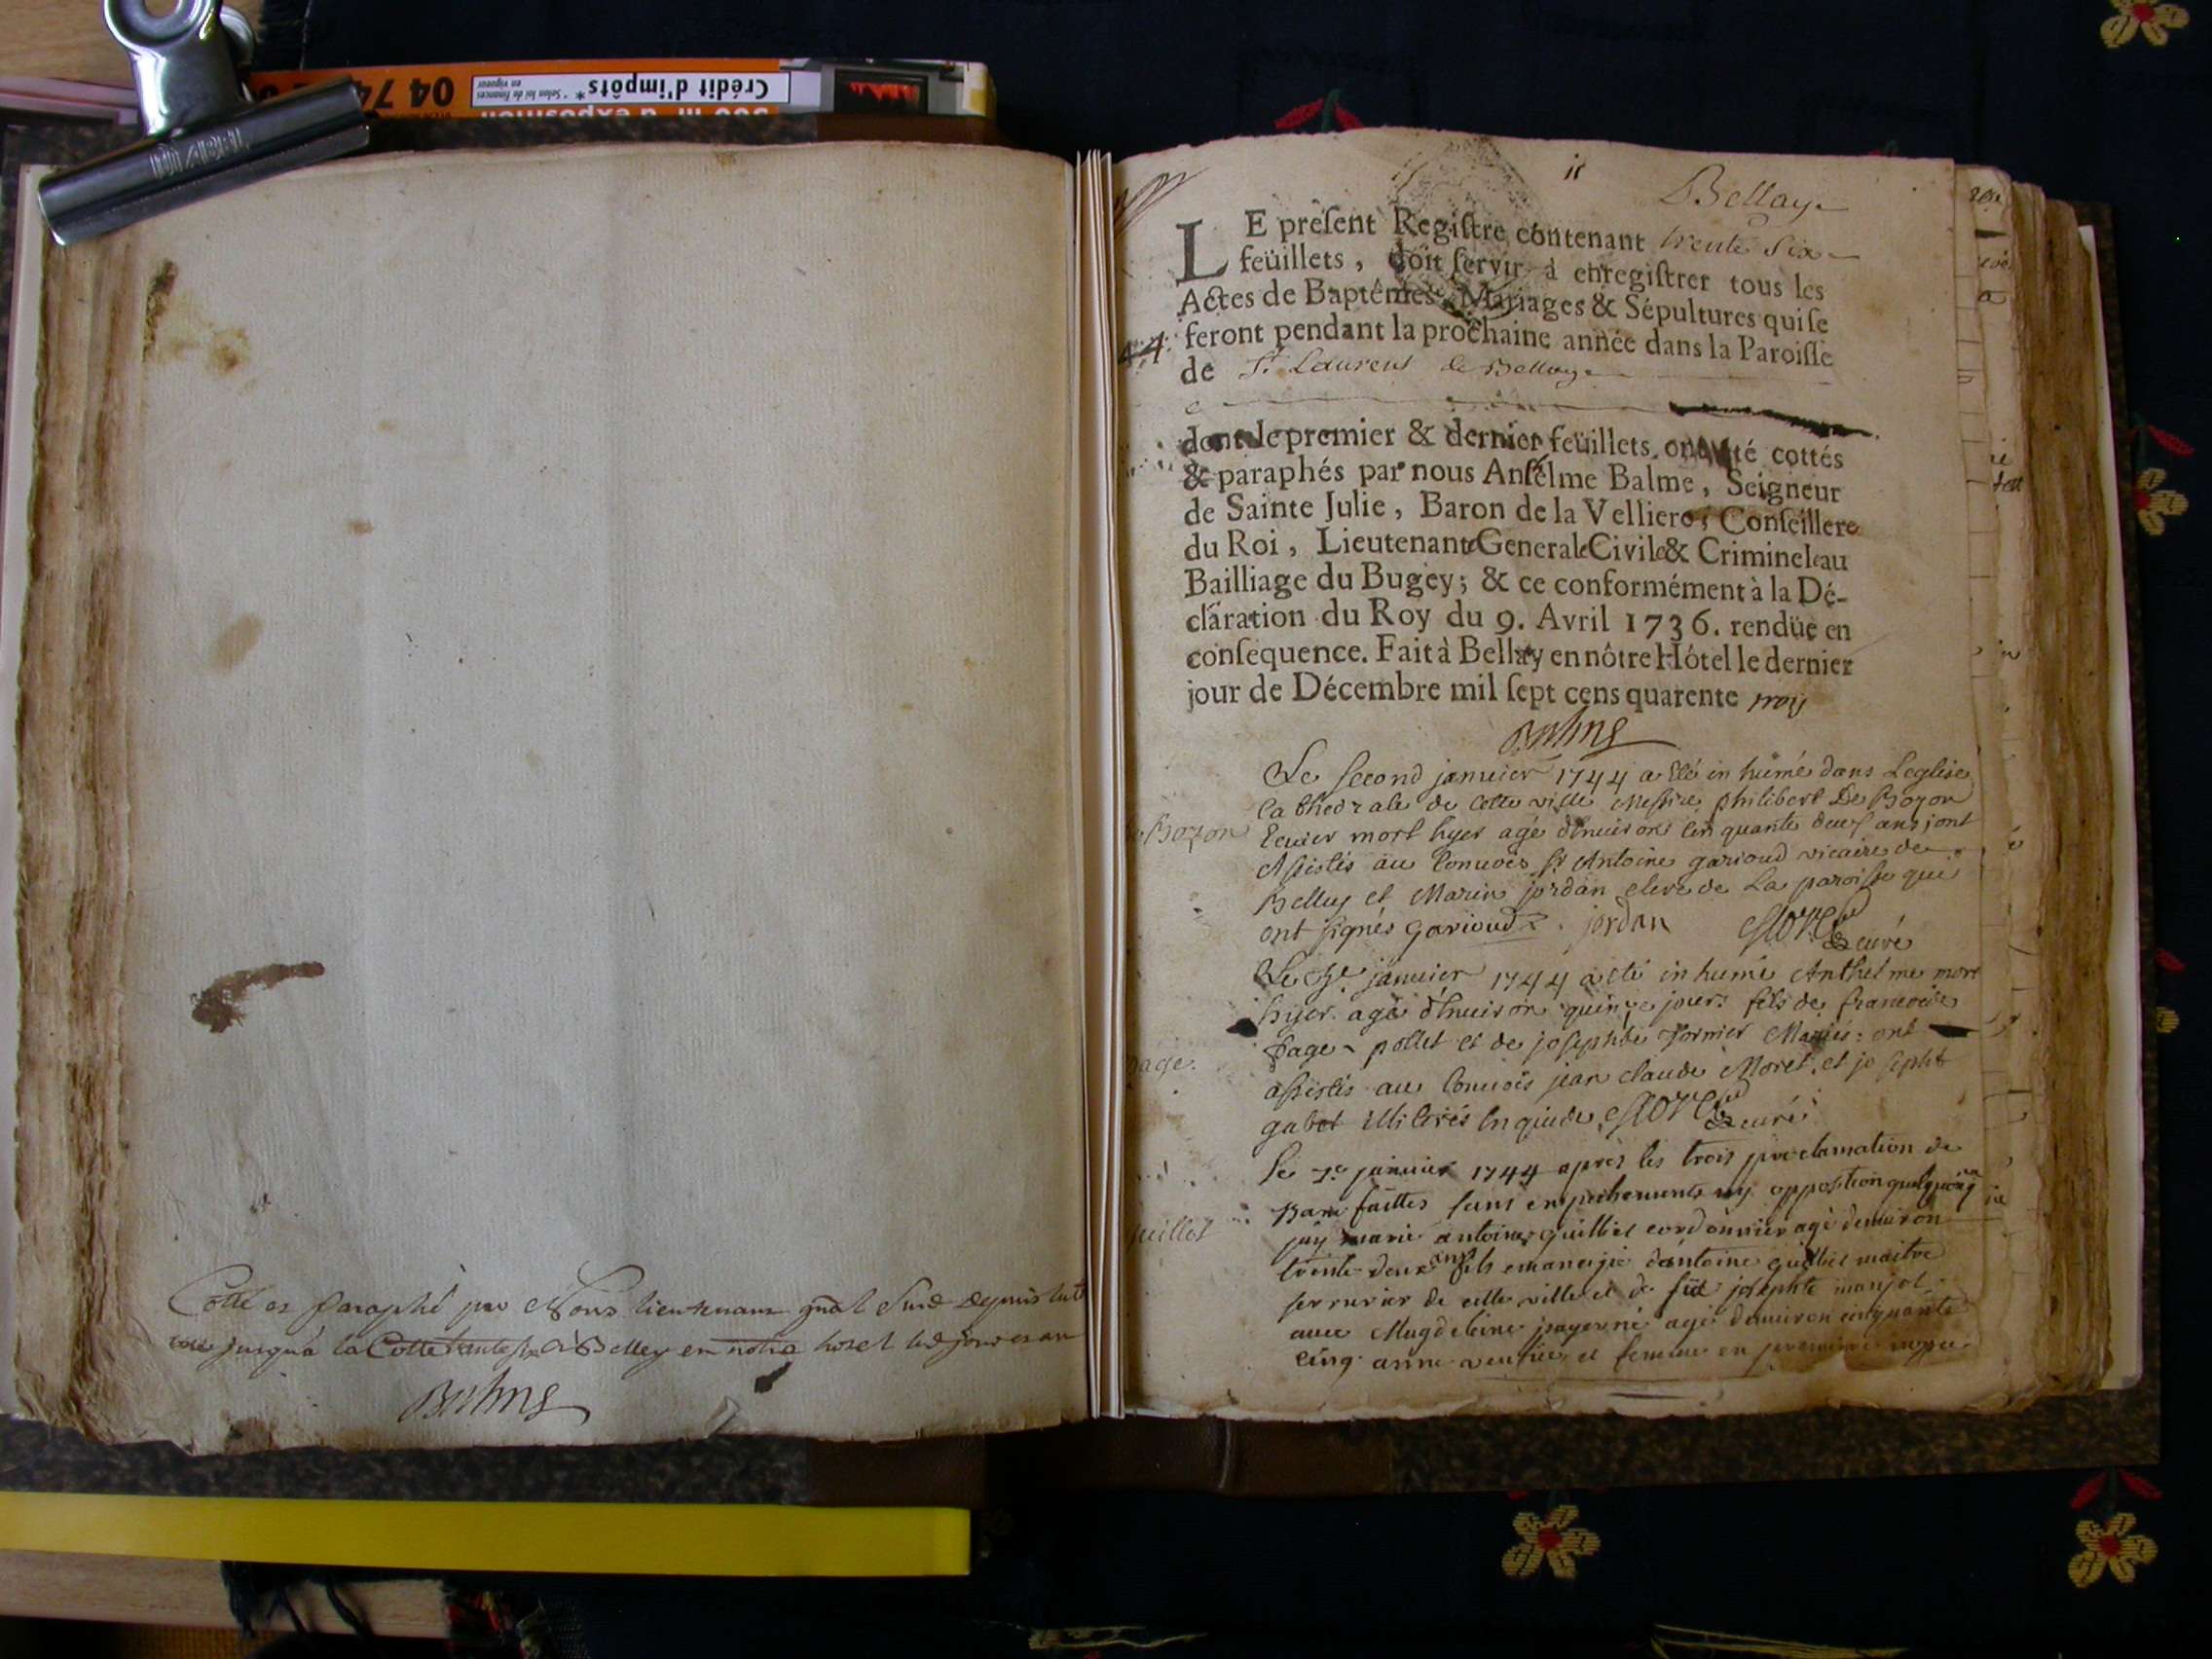 04 74
Crédit d'impôts*
* Selon loi de finances en vigueur
Cotté et Paraphé par Nous lieutenant gnal Susd Depuis
jusqu'a la Cotte trente six A Belley en notre hotel led jour et an
Balme
Bellay
LE préſent Regiſtre contenant trente six
feüillets, doit ſervir à enregiſtrer tous les
Actes de Baptêmes, Mariages & Sépultures qui ſe
feront pendant la prochaine année dans la Paroiſſe
de St. Laurent de Bellay
dont le premier & dernier feüillets ont été cottés
& paraphés par nous Anſelme Balme, Seigneur
de Sainte Julie, Baron de la Velliere, Conſeiller
du Roi, Lieutenant General Civil & Criminel au
Bailliage du Bugey; & ce conformément à la Dé-
claration du Roy du 9. Avril 1736. rendüe en
conſequence. Fait à Bellay en nôtre Hôtel le dernier
jour de Décembre mil ſept cens quarente trois
Balme
Le second januier 1744 a eté in humé dans Leglise
Cathedrale de cette ville Messire philibert De Bozon
Bozon
Ecuier mort hyer agé d'enuiron cinquante deux ans; ont
Assistés au Conuois Sr Antoine garioud vicaire de
Belley et Marin jordan clerc de La paroisse qui
ont signés garioud. jordan curé
Le januier 1744 a eté in humé Anthelme mort
hyer agé d'enuiron quinze jours fils de francoise
page pollet et de josephte Mariés: ont
page.
assistés au Conuois jean claude Moret, et josepht
gabet illiterés Enquis curé
Le 7e januier 1744 apres les trois proclamation de
Ban faittes sans enpechements ny opposition
juillet
marie antoine cordonnier agé denuiron
trente deux ans fils emancipé d'antoine maitre
serrurier de cette ville et de josephte
auec Magdeleine agé denuiron cinquante
cinq anne et femme en premiere